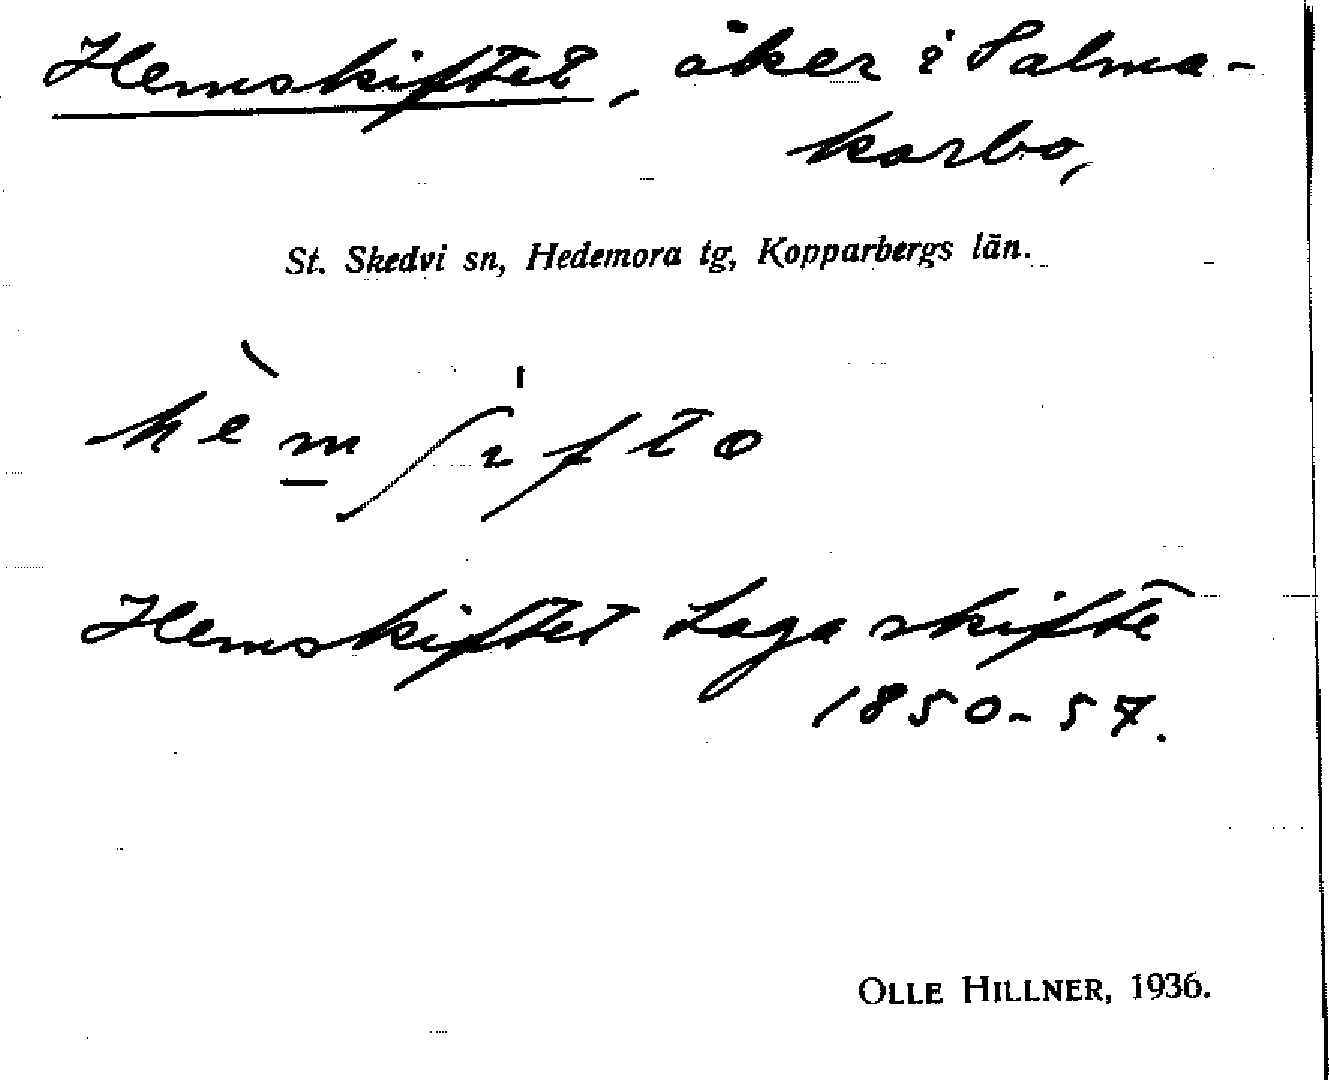 Hemskiftet, åker i Salma-
karbo,
St. Skedvi sn, Hedemora tg, Kopparbergs län.
hèmʃıftə
Hemskiftet Laga skifte
1850-57.
OLLE HILLNER, 1936.